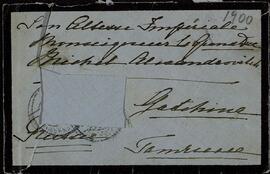 1900
Son Altesse Impériale
Monseigneur le Grand Duc
Michel Alexandrovitch
Gatchina